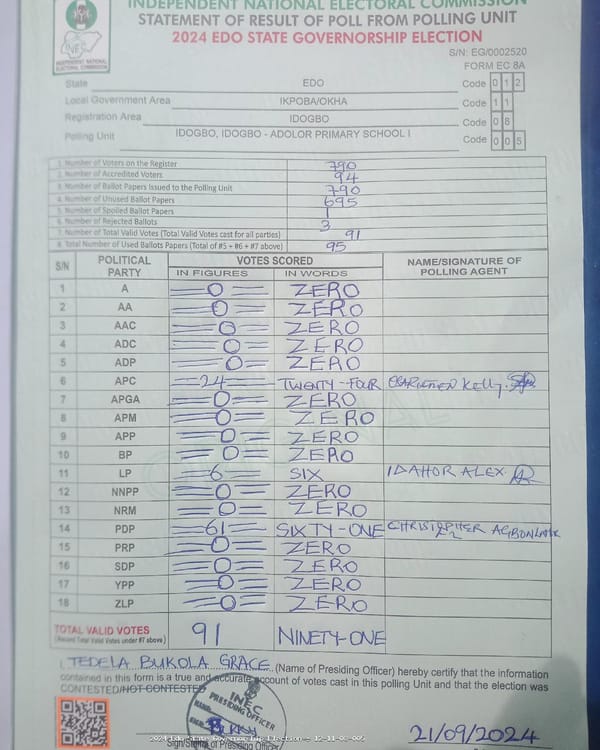 INDEPENDENT NATIONAL ELECTORAL COMMISSION
STATEMENT OF RESULT OF POLL FROM POLLING UNIT
2024 EDO STATE GOVERNORSHIP ELECTION
INEC
INDEPENDENT NATIONAL ELECTORAL COMMISSION
S/N: EG/0002520
FORM EC 8A
State EDO Code 0 1 2
Local Government Area IKPOBA/OKHA Code 1 1
Registration Area IDOGBO Code 0 8
Polling Unit IDOGBO, IDOGBO - ADOLOR PRIMARY SCHOOL I Code 0 0 5
1. Number of Voters on the Register 790
2. Number of Accredited Voters 94
3. Number of Ballot Papers Issued to the Polling Unit 790
4. Number of Unused Ballot Papers 695
5. Number of Spoiled Ballot Papers 1
6. Number of Rejected Ballots 3
7. Number of Total Valid Votes (Total Valid Votes cast for all parties) 91
8. Total Number of Used Ballots Papers (Total of #5 + #6 + #7 above) 95
S/N POLITICAL PARTY VOTES SCORED NAME/SIGNATURE OF POLLING AGENT
IN FIGURES IN WORDS
1 A 0 ZERO
2 AA 0 ZERO
3 AAC 0 ZERO
4 ADC 0 ZERO
5 ADP 0 ZERO
6 APC 24 TWENTY-FOUR Kelly
7 APGA 0 ZERO
8 APM 0 ZERO
9 APP 0 ZERO
10 BP 0 ZERO
11 LP 6 SIX IDAHOR ALEX
12 NNPP 0 ZERO
13 NRM 0 ZERO
14 PDP 61 SIXTY-ONE CHRISTOPHER
15 PRP 0 ZERO
16 SDP 0 ZERO
17 YPP 0 ZERO
18 ZLP 0 ZERO
TOTAL VALID VOTES 91 NINETY-ONE
(Record Total Valid Votes under #7 above)
I, TEDELA BUKOLA GRACE (Name of Presiding Officer) hereby certify that the information
contained in this form is a true and accurate account of votes cast in this polling Unit and that the election was
CONTESTED/NOT CONTESTED
INEC
PRESIDING OFFICER
Sign/Stamp of Presiding Officer
21/09/2024